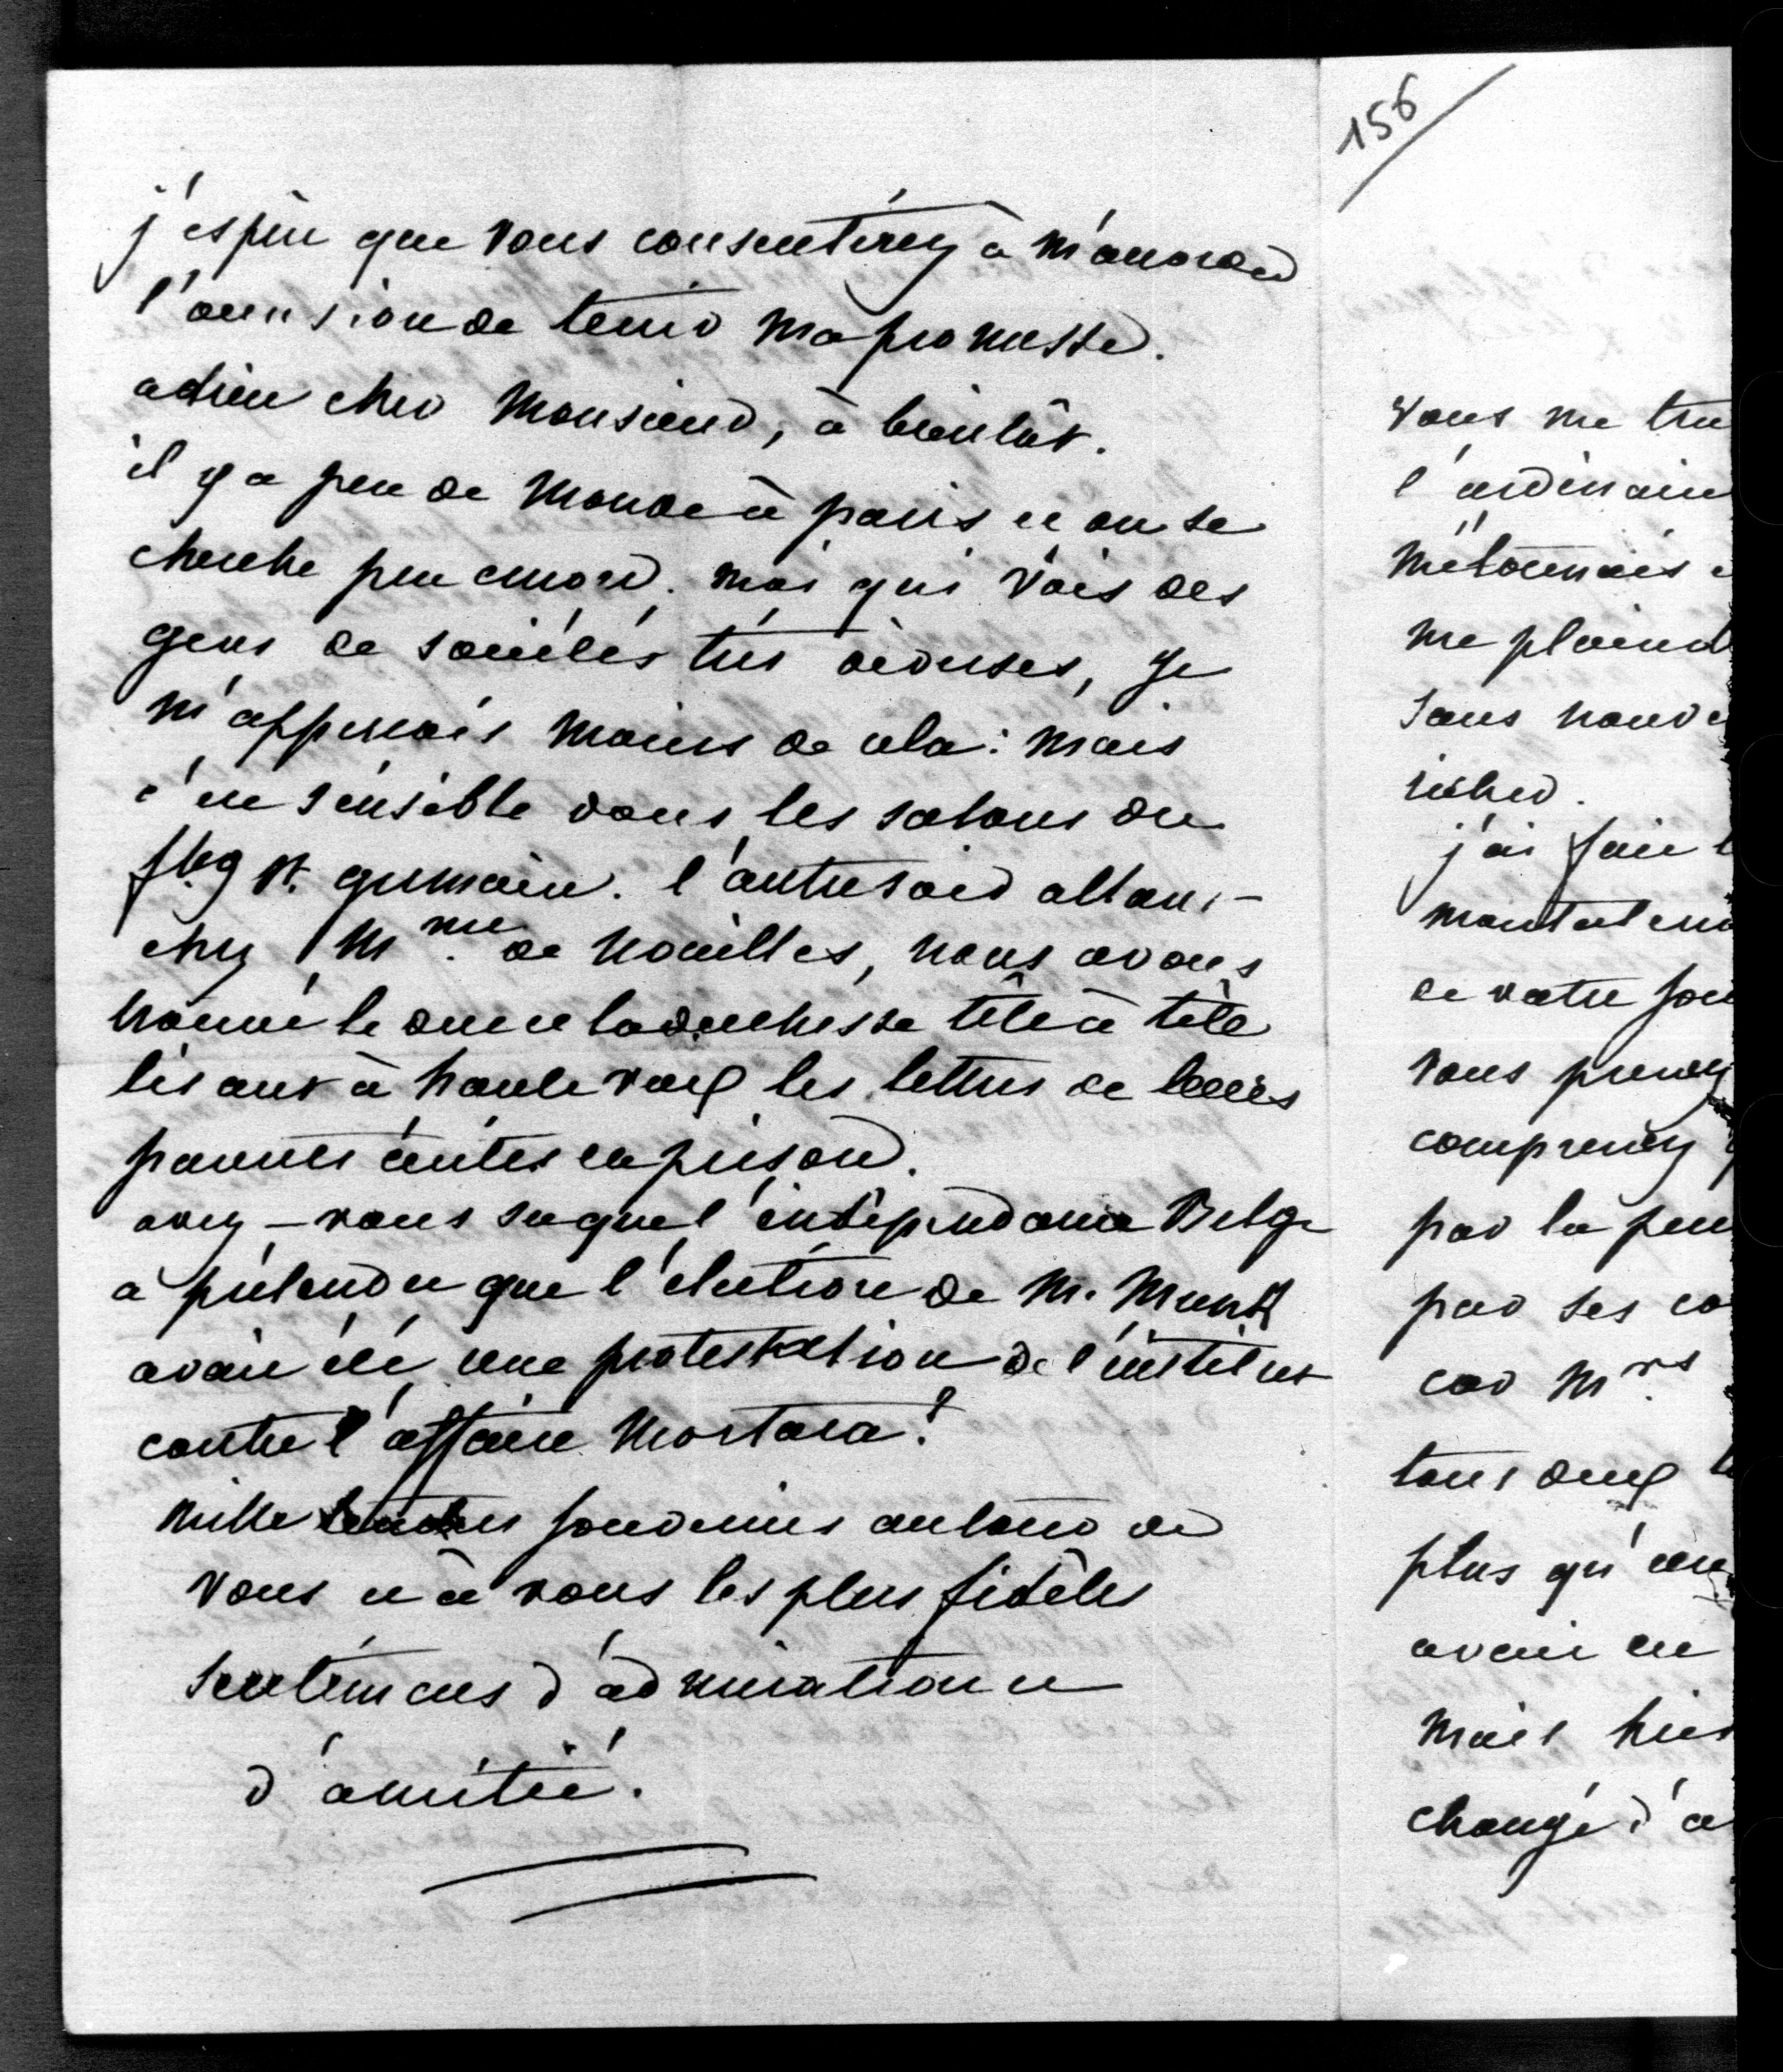 j'espère que vous consentirez à m'accorder
l'occasion de tenir ma promesse.
adieu cher Monsieur, à bientôt.
il y a peu de monde à paris et on se
cherche peu encore. moi qui vois des
gens de sociétés très diverses, je
m'apperçois moins de cela : mais
c'est sensible dans les salons du
fbg St. germain. l'autre soir allant
chez Mme. de Noailles, nous avons
trouvé le duc et la duchesse tête à tête
lisant à haute voix les lettres de leurs
parentes écrites en prison.
avez-vous su que l'indépendance Belge
a prétendu que l'élection de M. Munk
avait été une protestation de l'institut
contre l'affaire Mortara !
mille tendres souvenirs autour de
vous et à vous les plus fidèles
sentimens d'admiration et
d'amitié.
156
vous me
l'ordinaire
m'étonnais
me plaind
sans
j'ai fait
de votre
vous prenez
comprenez
par la
par ses co
car Mrs
tous deux
plus qu'un
avait eu
mais hier
changé d'a